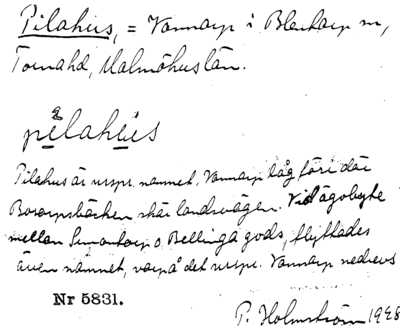 Pilahus, = Vannarp i Blentarp sn,
Torna hd, Malmöhus län.
pilahus
Pilahus är urspr. namnet. Vannarp låg förr där
Bororpsbäcken skär landsvägen. Vid ägobyte
mellan Simontorp o Bellinga gods, flyttades
även namnet, varpå det urspr. Vannarp nedrevs
Nr 5831.
P. Holmström 1928